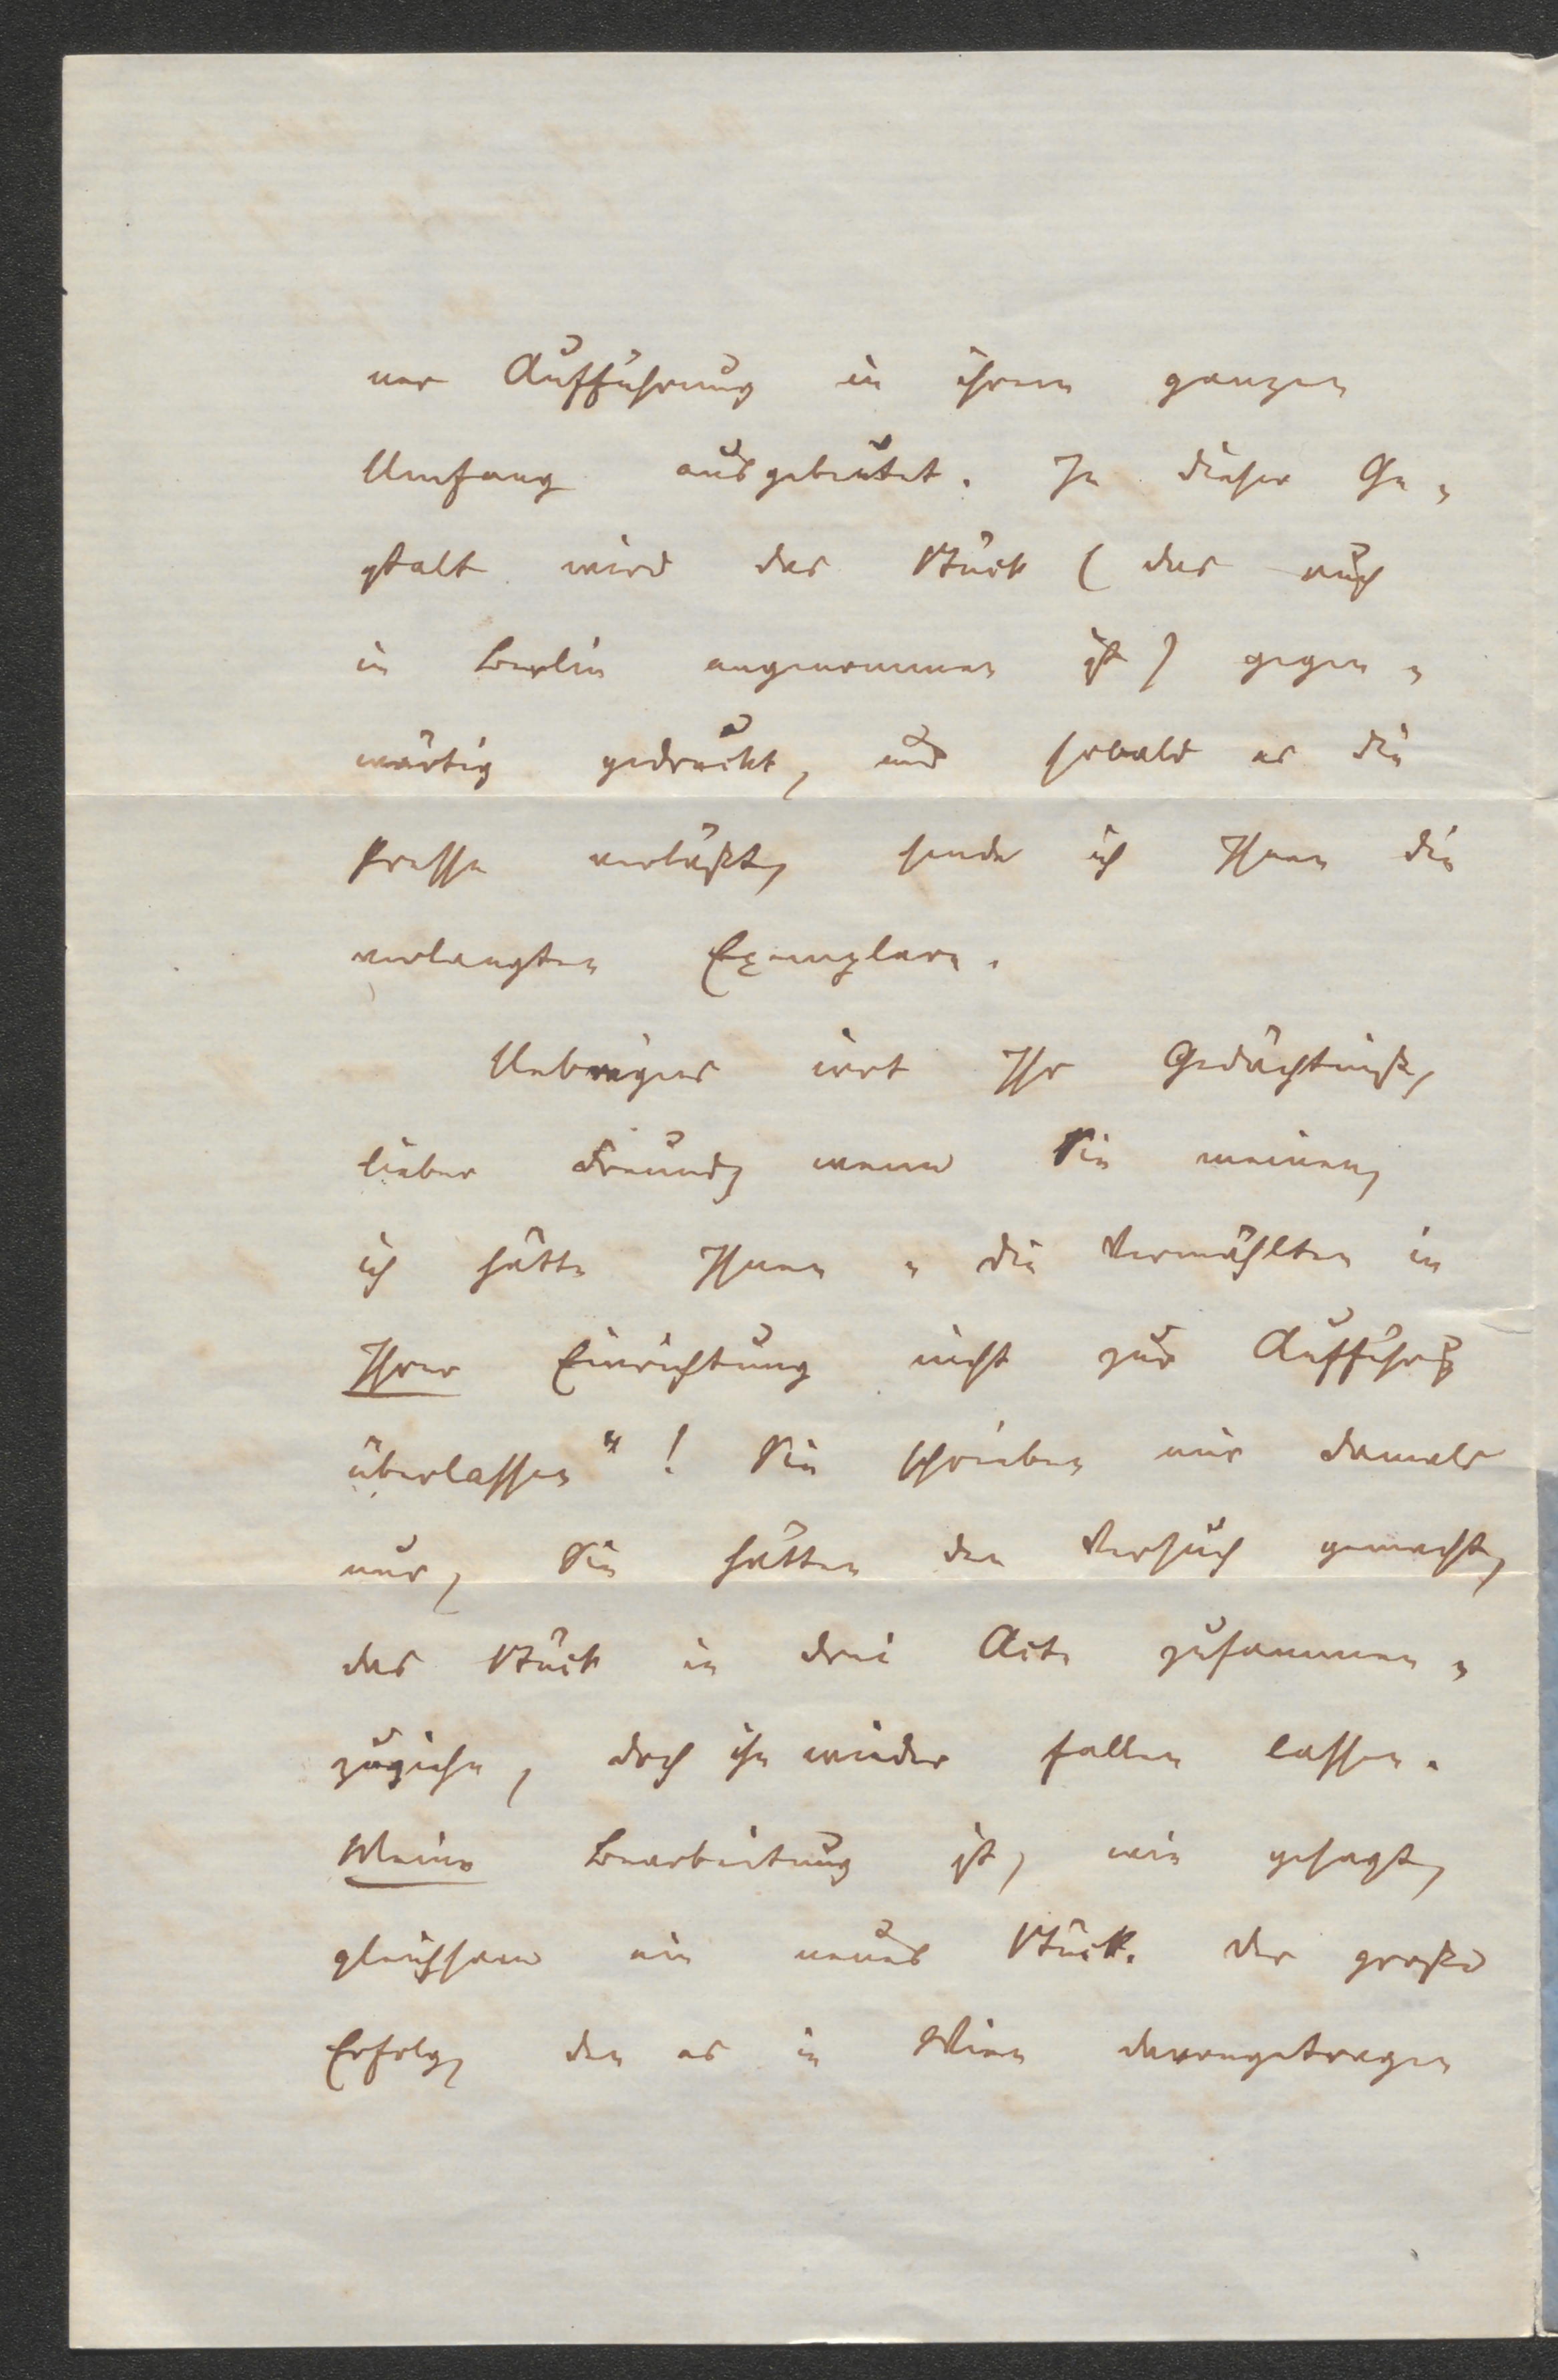 ner Aufführung in ihrem ganzen
Umfang ausgebeutet. In dieser Ge-
stalt wird das Stück (das auch
in Berlin angenommen ist) gegen-
wärtig gedruckt, und sobald es die
Presse verläßt, sende ich Ihnen die
verlangten Exemplare.
Uebrigens irrt Ihr Gedächtniß,
lieber Freund, wenn Sie meinen,
ich hätte Ihnen „die Vermählten in
Ihrer Einrichtung nicht zur Aufführg
überlassen“! Sie schrieben mir damals
nur, Sie hätten den Versuch gemacht,
das Stück in drei Acte zusammen-
zuziehn, doch ihn wieder fallen lassen.
Meine Bearbeitung ist, wie gesagt,
gleichsam ein neues Stück. Der große
Erfolg, den es in Wien davongetragen